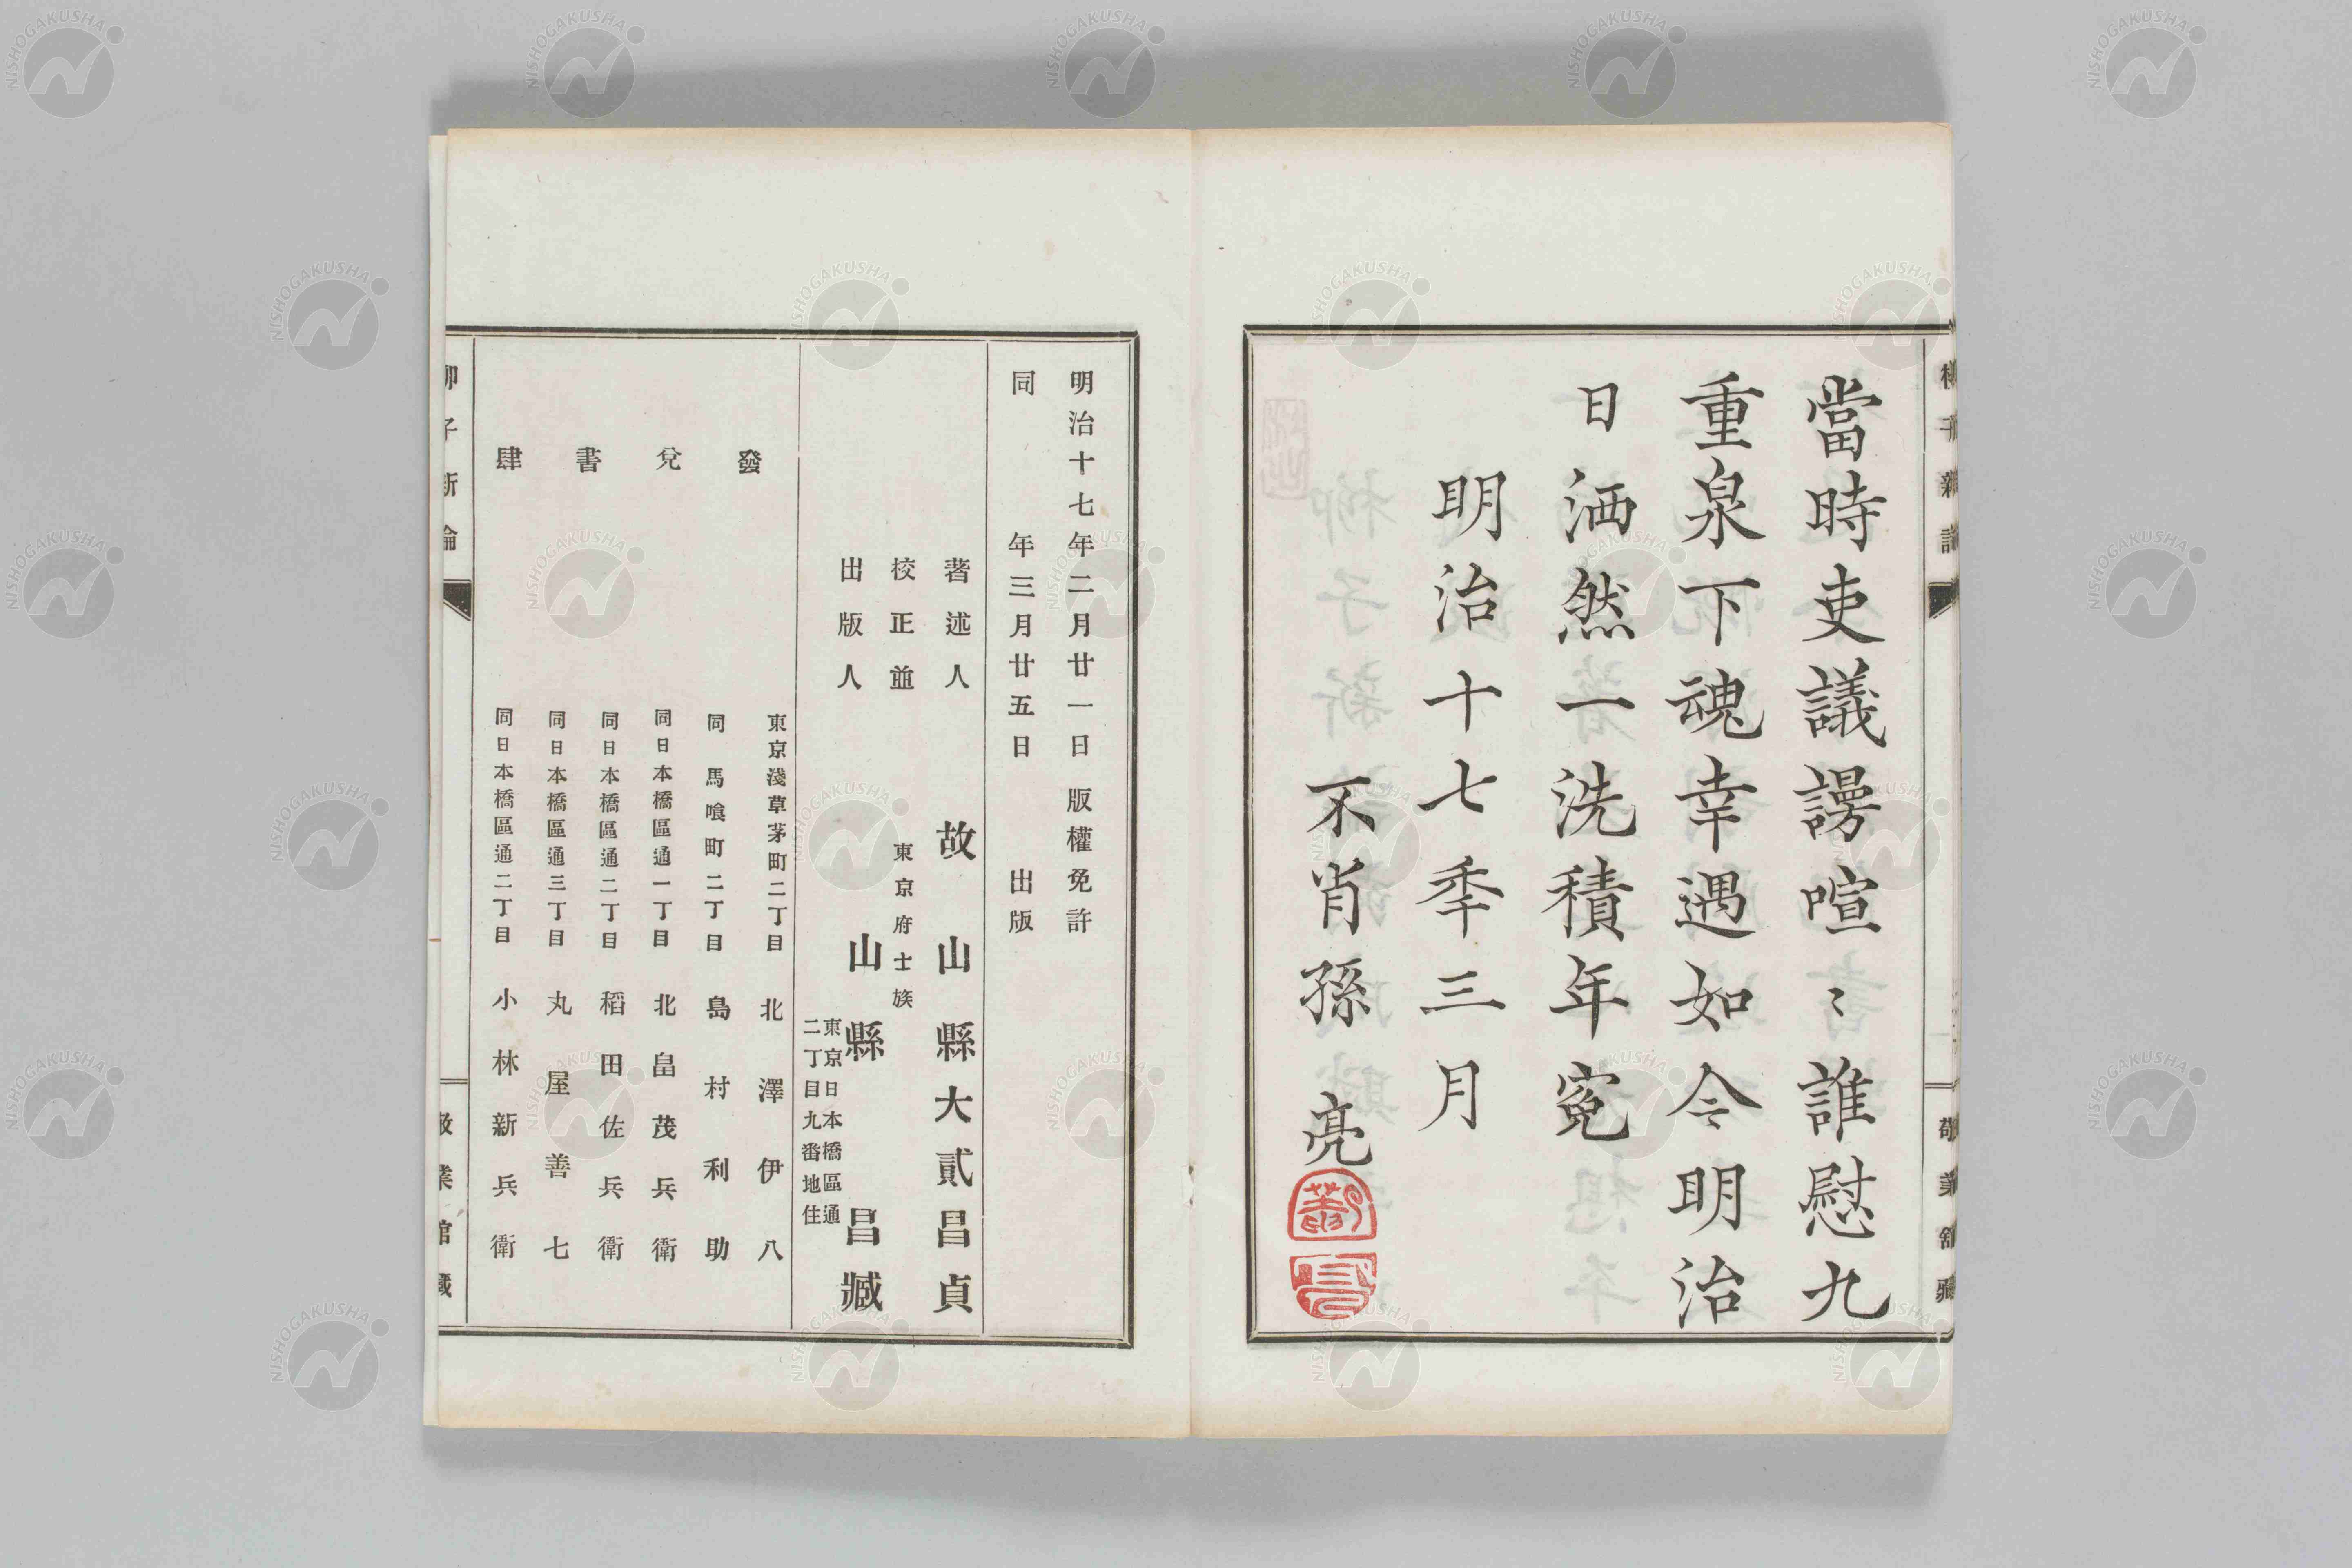 當時吏議謗喧〻誰慰九
重泉下魂幸遇如今明治
日洒然一洗積年寃
明治十七季三月
不肖孫亮
柳子新論
敬業舘藏
明治十七年二月廿一日版權免許
同年三月廿五日出版
著述人 故山縣大貳昌貞
校正並 東京府士族
出版人 山縣昌臧
東京日本橋區通
二丁目九番地住
發兌書肆
東京淺草茅町二丁目 北澤伊八
同馬喰町二丁目 島村利助
同日本橋區通一丁目 北畠茂兵衛
同日本橋區通二丁目 稻田佐兵衛
同日本橋區通三丁目 丸屋善七
同日本橋區通二丁目 小林新兵衛
柳子新論
敬業舘藏
NISHOGAKUSHA